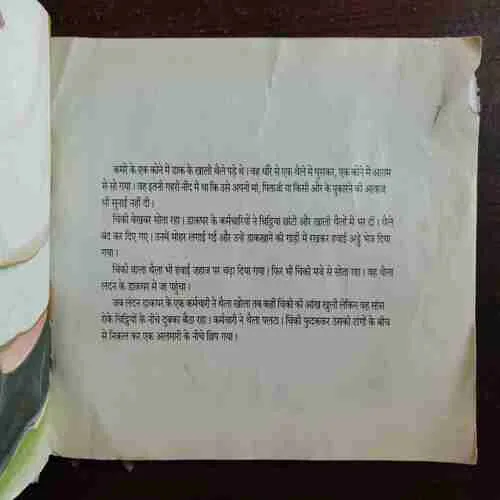 कमरे के एक कोने में डाक के खाली थैले पड़े थे। वह धीरे से एक थैले में घुसकर, एक कोने में आराम
से सो गया। वह इतनी गहरी नींद में था कि उसे अपनी मां, पिताजी या किसी और के पुकारने की आवाज
भी सुनाई नहीं दी।
चिंकी बेखबर सोता रहा। डाकघर के कर्मचारियों ने चिट्ठियां छांटी और खाली थैलों में भर दीं। थैले
बंद कर दिए गए। उनमें मोहर लगाई गई और उन्हें डाकखाने की गाड़ी में रखकर हवाई अड्डे भेज दिया
गया।
चिंकी वाला थैला भी हवाई जहाज पर चढ़ा दिया गया। फिर भी चिंकी मजे से सोता रहा। वह थैला
लंदन के डाकघर में जा पहुंचा।
जब लंदन डाकघर के एक कर्मचारी ने थैला खोला तब कहीं चिंकी की आंख खुली लेकिन वह सांस
रोके चिट्ठियों के नीचे दुबका बैठा रहा। कर्मचारी ने थैला पलटा। चिंकी फुदककर उसकी टांगों के बीच
से निकल कर एक अलमारी के नीचे छिप गया।